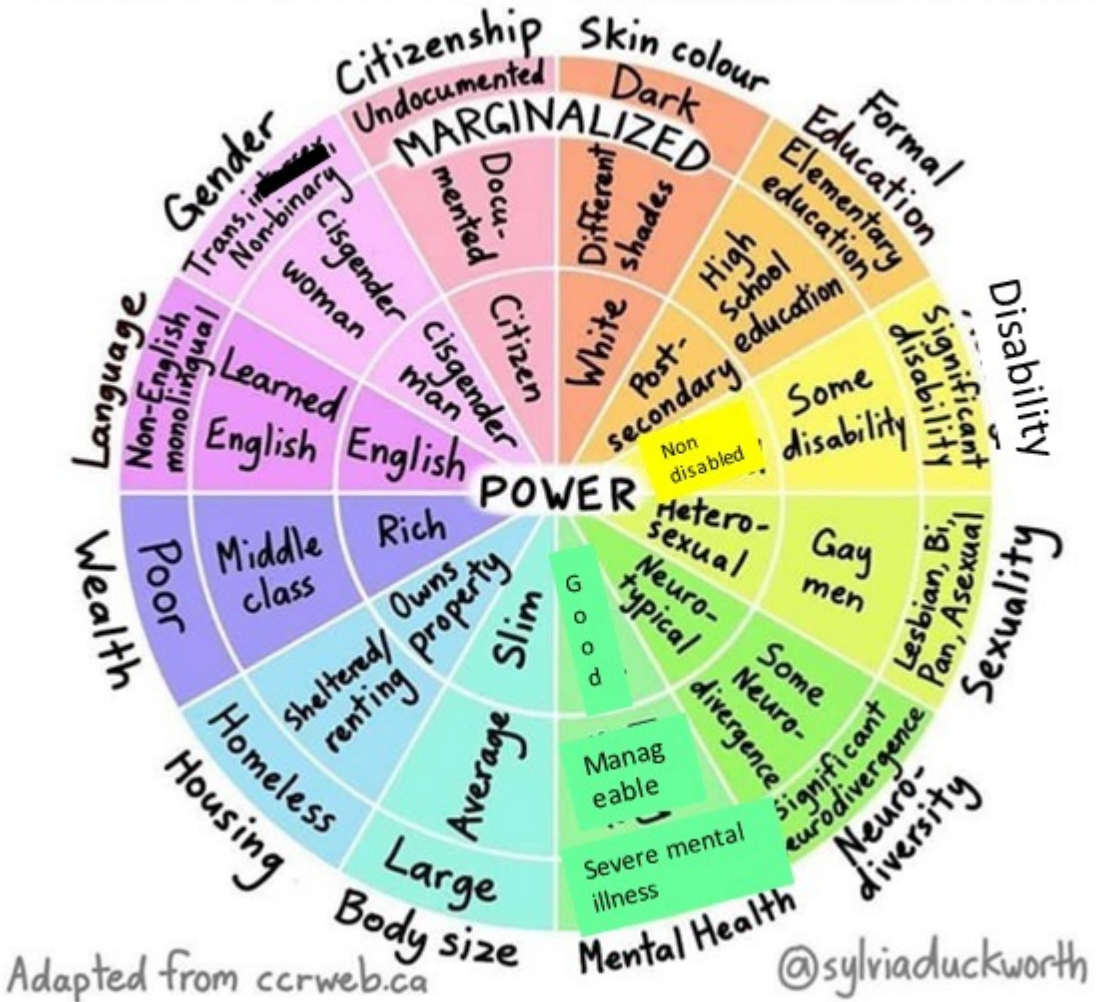 Citizenship
Undocumented
Docu-
mented
Citizen
Skin colour
Dark
Different
shades
White
MARGINALIZED
Formal
Education
Elementary
education
High
School
education
Post-
secondary
Disability
Significant
disability
Some
disability
Non
disabled
Sexuality
Lesbian, Bi,
Pan, Asexual
Gay
men
Hetero-
sexual
Neuro-
diversity
Significant
eurodivergence
Some
Neuro-
divergence
Neuro-
typical
Mental Health
Severe mental
illness
Manag
eable
G
o
o
d
Body size
Large
Average
Slim
Housing
Homeless
Sheltered/
renting
Owns
property
Wealth
Poor
Middle
class
Rich
Language
Non-English
monolingual
Learned
English
English
Gender
Trans,
Non-binary
cisgender
woman
cisgender
man
POWER
Adapted from ccrweb.ca
@sylviaduckworth